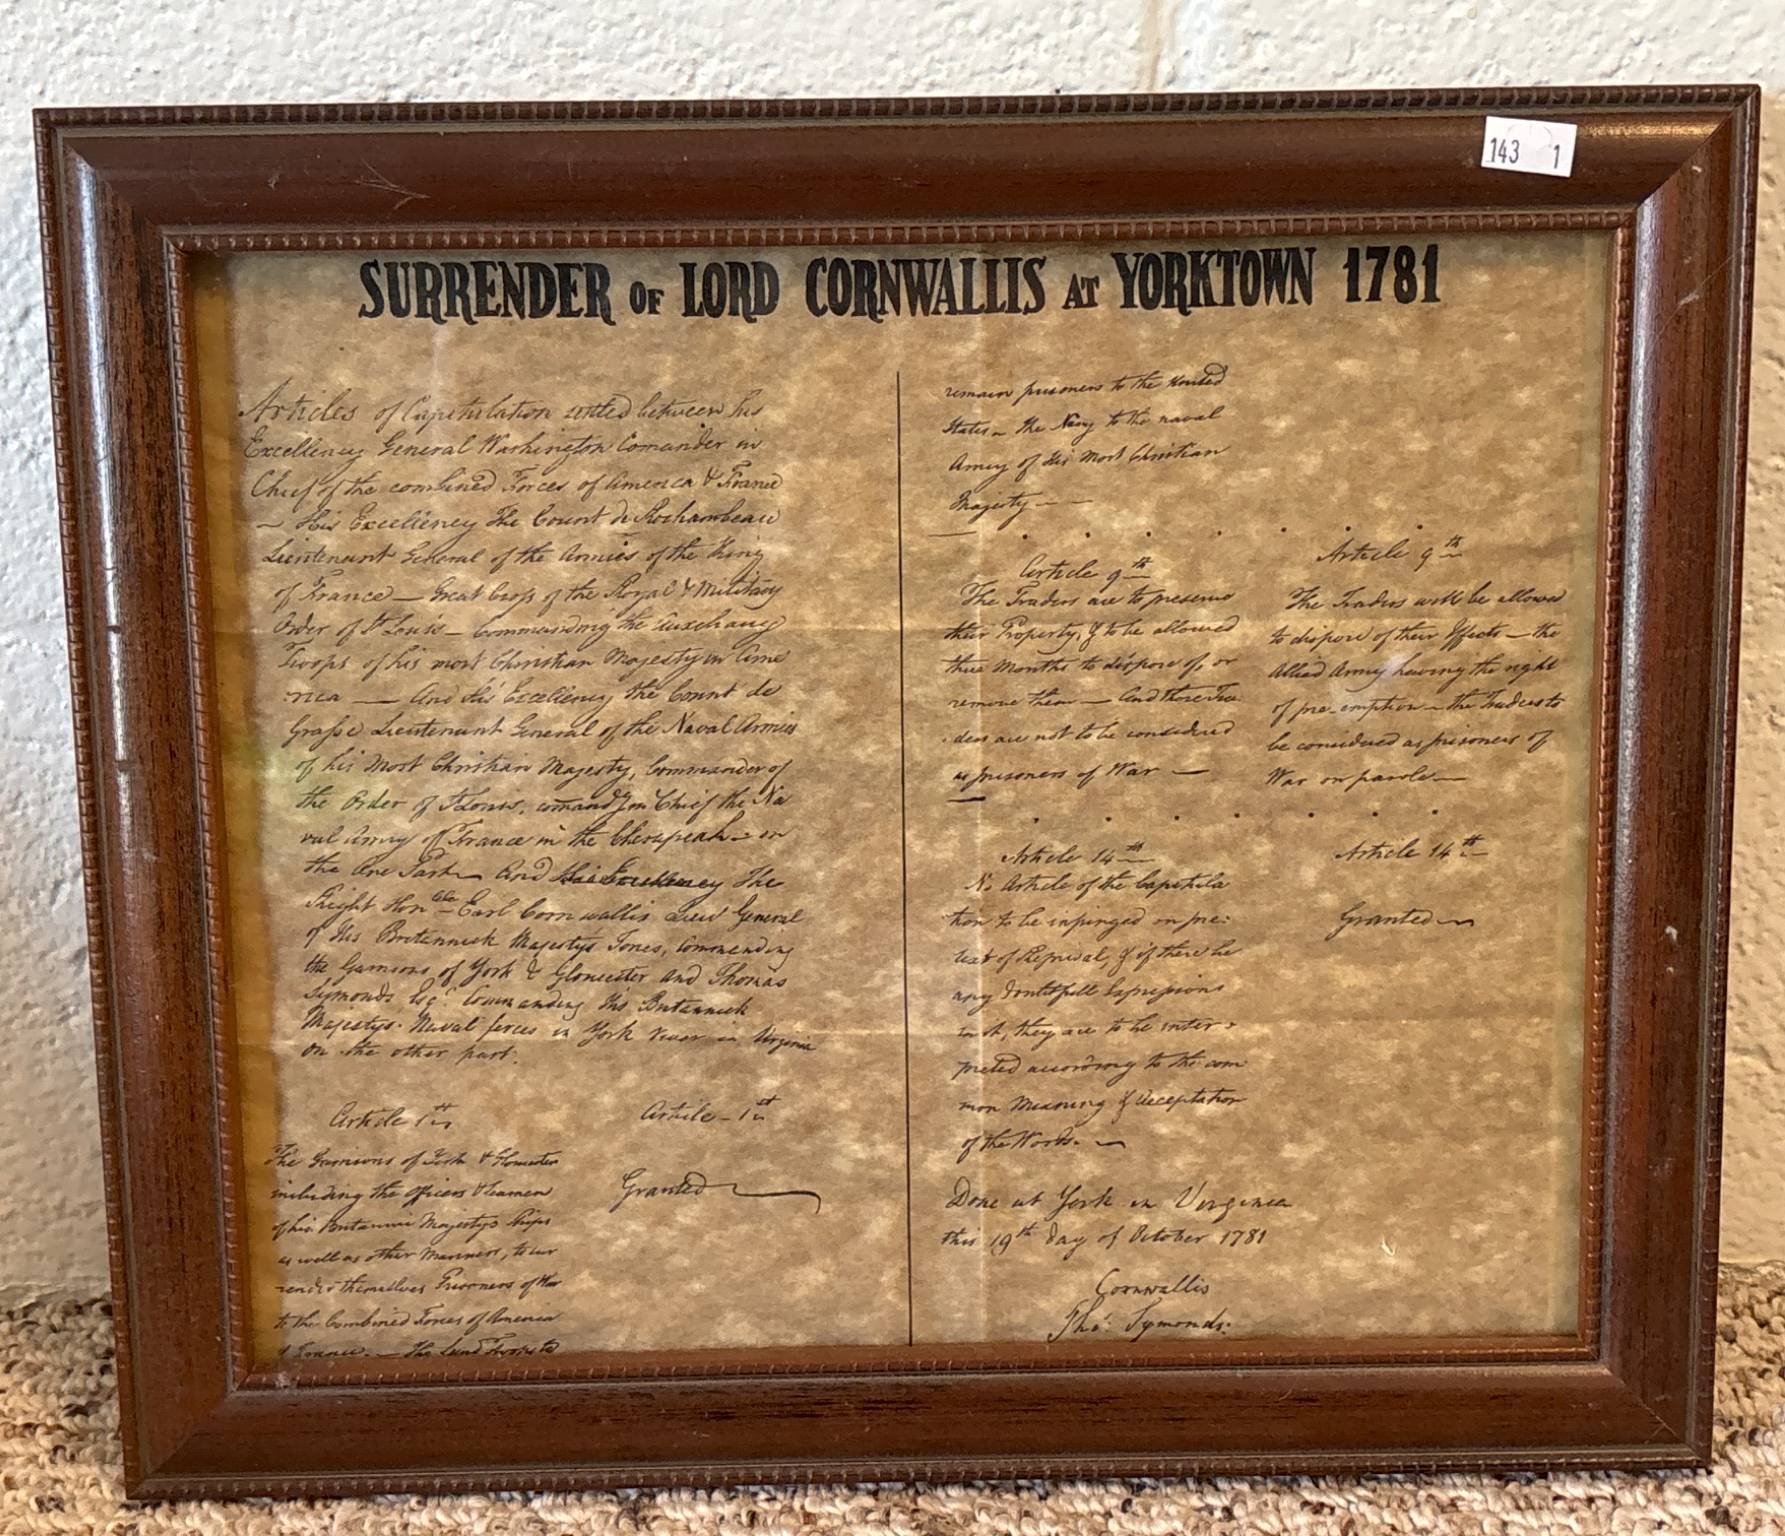 143 1
SURRENDER OF LORD CORNWALLIS AT YORKTOWN 1781
Articles of Capitulation settled between his
Excellency General Washington Comander in
Chief of the combined Forces of America & France
— His Excellency The Count de Rochambeau
Lieutenant General of the Armies of the King
of France — Great Cross of the Royal & Military
Order of St Louis — Commanding the auxiliary
Troops of his most Christian Majesty in Ame
rica — And His Excellency the Count de
Grasse Lieutenant General of the Naval Armies
of his Most Christian Majesty, Commander of
the Order of St Louis, comandg in Chief the Na
val Army of France in the Chesapeak — on
the One Part — And His Excellency The
Right Honble Earl Cornwallis Lieu General
of His Britannick Majesty's Forces, Commanding
the Garrisons of York & Gloucester and Thomas
Symonds Esqr. Commanding His Britannick
Majestys Naval forces in York River in Virginia
on the other part.
Article 1st
The Garrisons of York & Gloucester
including the Officers & Seamen
of his Britannic Majestys Ships
as well as other Mariners, to sur
render themselves Prisoners of War
to the Combined Forces of America
& France. — The Land Troops to
Article — 1st
Granted
remain prisoners to the United
States — the Navy to the naval
Army of His Most Christian
Majesty —
Article 9th
The Traders are to preserve
their Property, & to be allowed
three Months to dispose of, or
remove them — And those Tra
ders are not to be considered
as prisoners of War —
Article 9th
The Traders will be allowed
to dispose of their Effects — the
Allied Army having the right
of pre-emption — the Traders to
be considered as prisoners of
War on parole —
Article 14th
No Article of the Capitula
tion to be infringed on pre:
text of Reprisal, & if there be
any doubtfull Expressions
in it, they are to be inter:
preted according to the com
mon Meaning & Acceptation
of the Words. —
Article 14th
Granted —
Done at York in Virginia
this 19th day of October 1781
Cornwallis
Thos. Symonds.